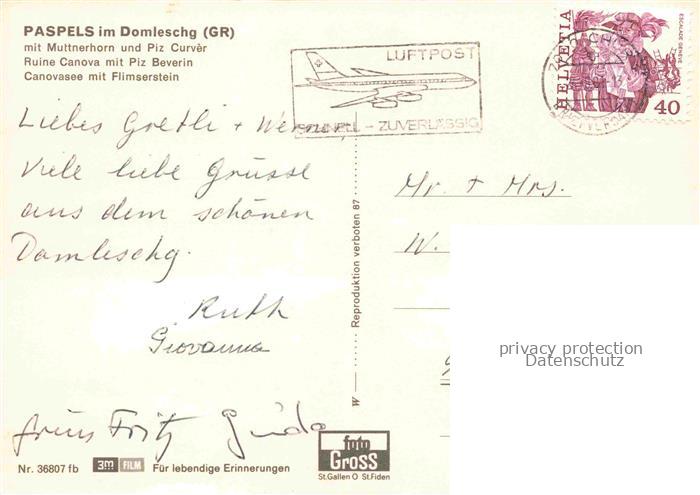 PASPELS im Domleschg (GR)
mit Muttnerhorn und Piz Curvèr
Ruine Canova mit Piz Beverin
Canovasee mit Flimserstein
LUFTPOST
SCHNELL – ZUVERLÄSSIG
HELVETIA
ESCALADE GENEVE
40
Liebes Gretli + Werner,
Viele liebe Grüsse
aus dem schönen
Domleschg.
Ruth
Giovanna
Fritz Guido
Mr. + Mrs.
W.
W — Reproduktion verboten 87
privacy protection
Datenschutz
foto
GROSS
St.Gallen O St.Fiden
Nr. 36807 fb 3M FILM Für lebendige Erinnerungen